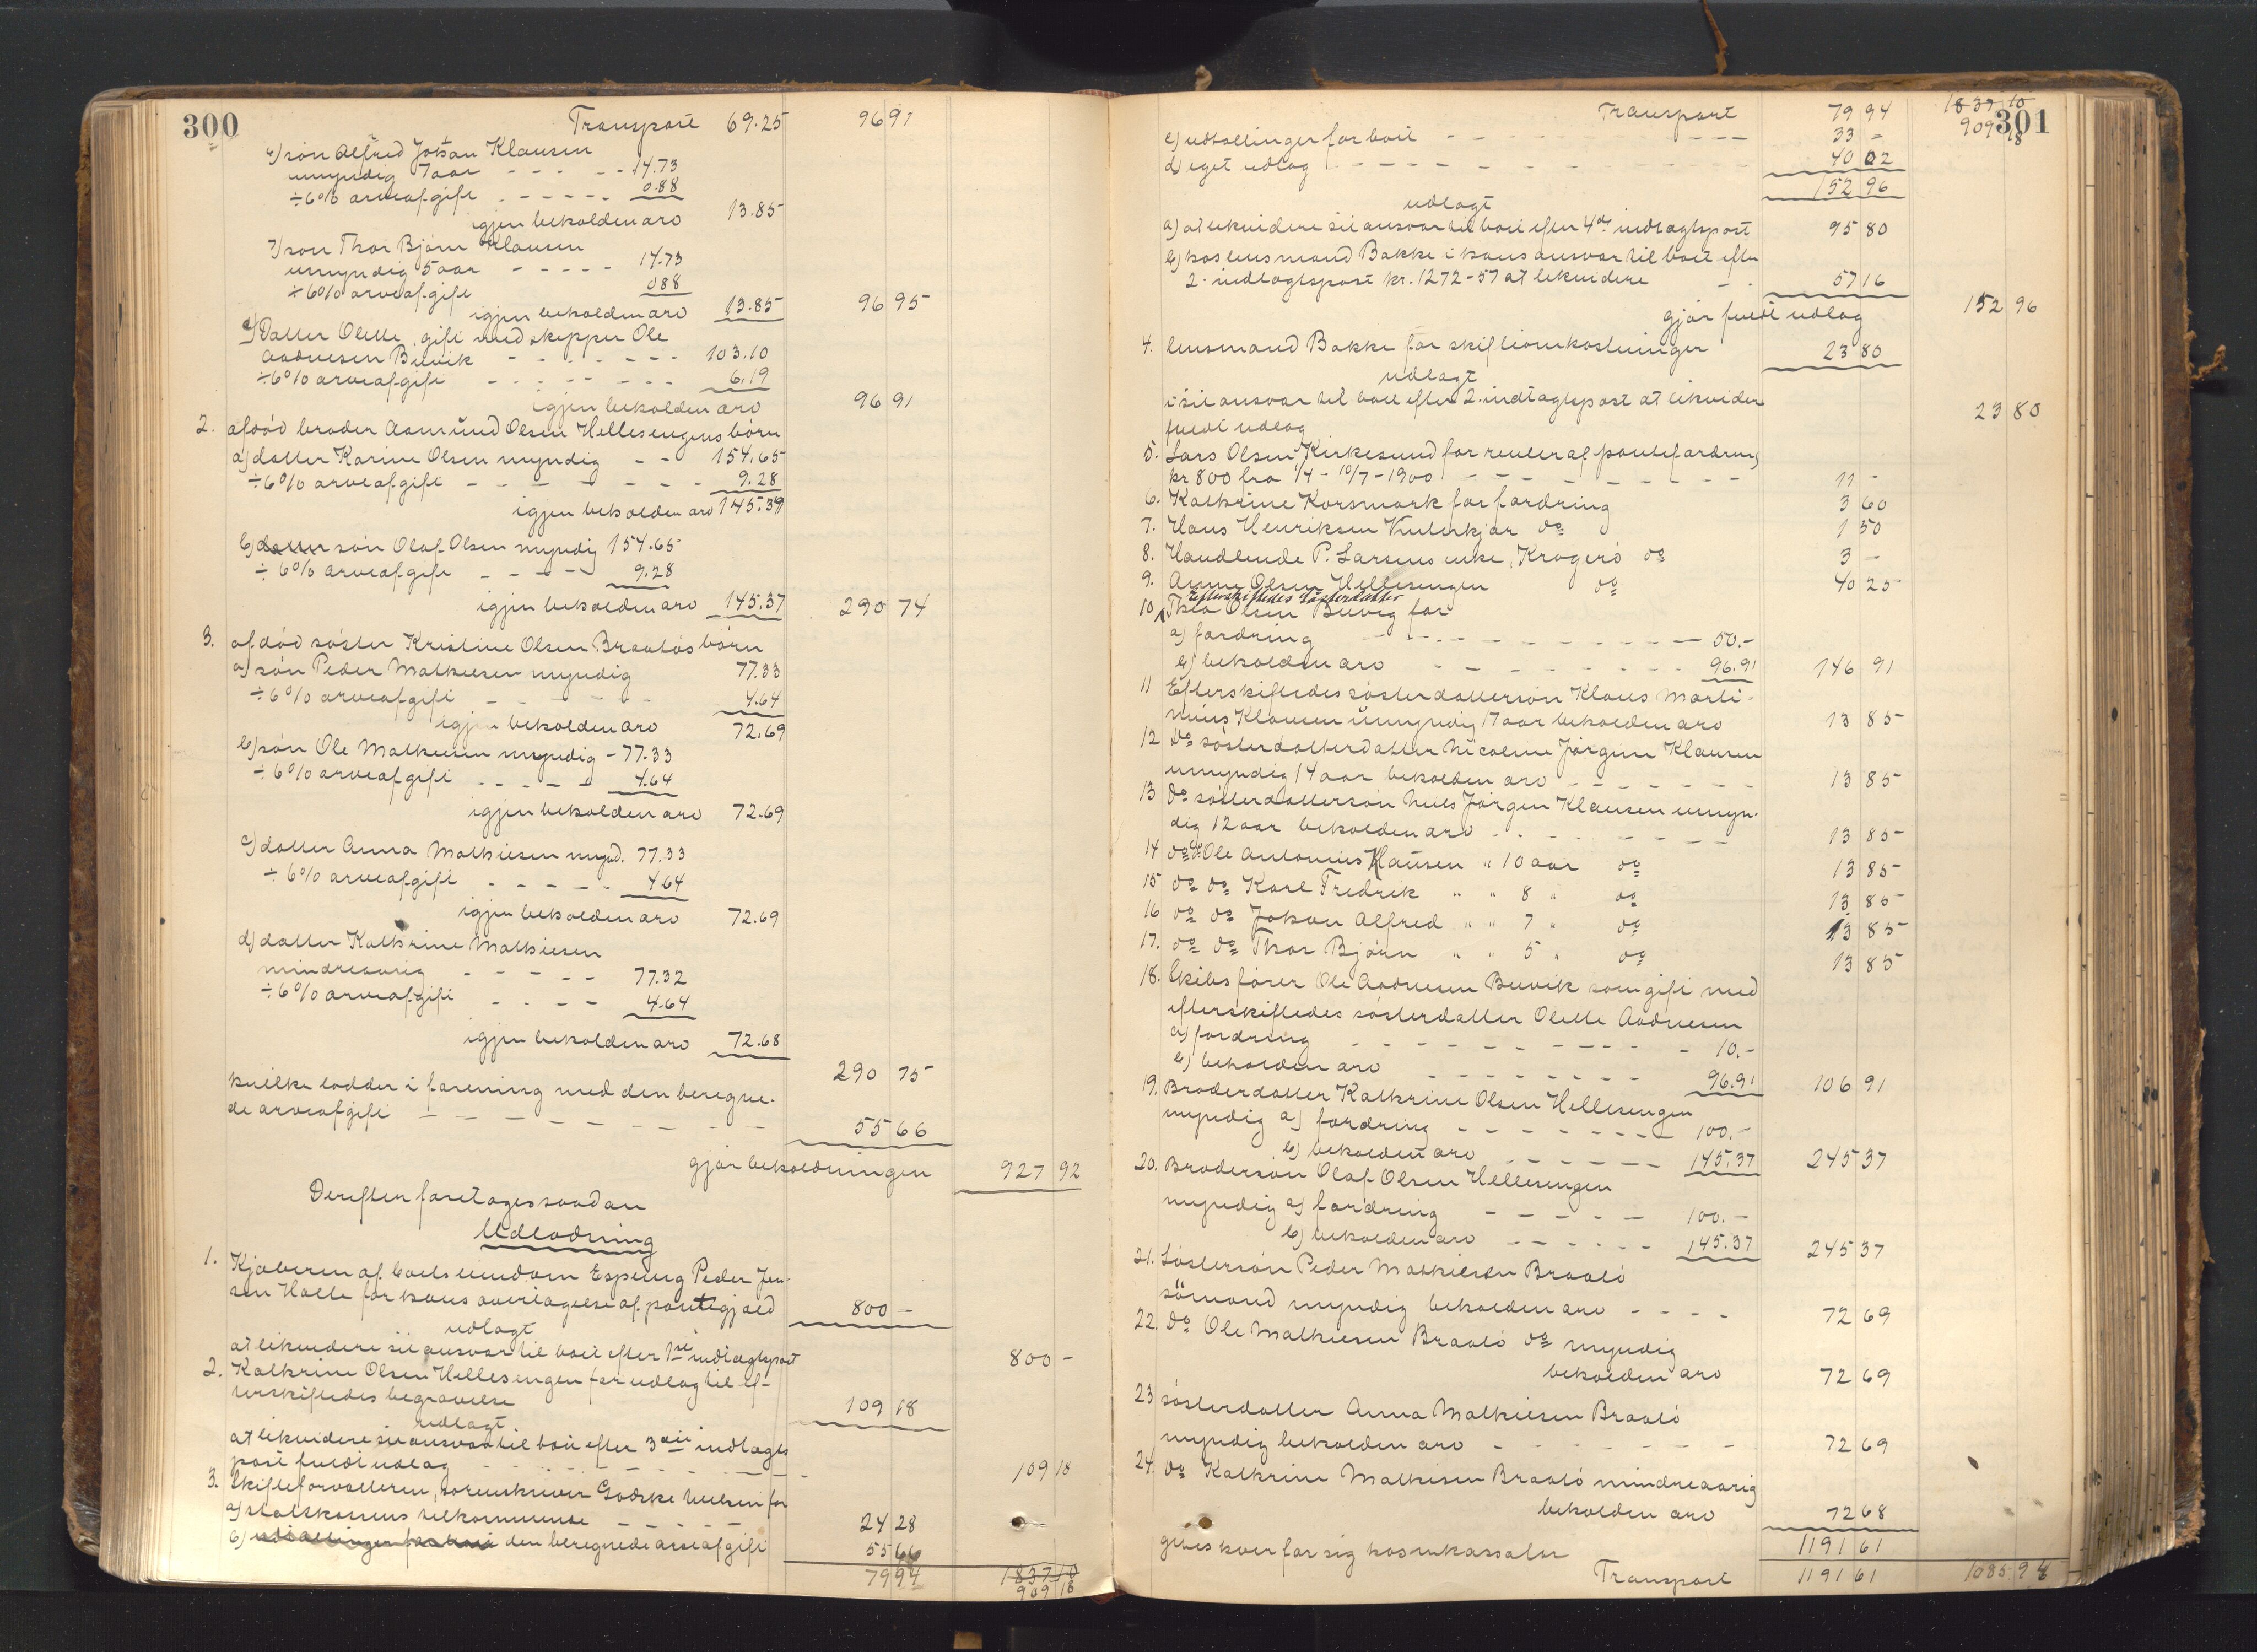 300
Transport 69.25 96 91
4) søn Alfred Johan Klausen
umyndig 7 aar - - - - - 14.73
÷ 6% arveafgift - - - - - 0.88
igjen beholden arv 13.85
7) søn Thor Bjørn Klausen
umyndig 5 aar - - - - - 14.73
÷ 6% arveafgift 0.88
igjen beholden arv 13.85 96 95
c) Datter Olette, gift med skipper Ole
Aadnesen Buvik - - - - - - 103.10
÷ 6% arveafgift - - - - - - 6.19
igjen beholden arv 96 91
2. afdød broder Aamund Olsen Hellesengens børn
a) datter Karine Olsen myndig - - 154.65
÷ 6% arveafgift - - - - - - 9.28
igjen beholden arv 145.37
b) datter søn Olaf Olsen myndig 154.65
÷ 6% arveafgift - - - - 9.28
igjen beholden arv 145.37 290 74
3. afdød søster Kristine Olsen Braatøs børn
a) søn Peder Mathiesen myndig 77.33
÷ 6% arveafgift - - - - - 4.64
igjen beholden arv 72.69
b) søn Ole Mathiesen myndig - 77.33
÷ 6% arveafgift - - - - 4.64
igjen beholden arv 72.69
c) datter Anna Mathiesen mynd. 77.33
÷ 6% arveafgift - - - - - 4.64
igjen beholden arv 72.69
d) datter Kathrine Mathiesen
mindreaarig - - - - - 77.32
÷ 6% arveafgift - - - - 4.64
igjen beholden arv 72.68
290 75
hvilke lodder i forening med den beregne-
de arveafgift - - - - - - - - 55 66
gjør beholdningen 927 92
Derefter foretages saadan
Udlodning
1. Kjøberen af boets eiendom Espeng Peder Jen-
sen Halle for hans overtagelse af pantegjæld 800 -
udlagt
at likvidere sit ansvar til boet efter 1ste indtægtspost 800 -
2. Kathrine Olsen Hellesengen for udlæg til ef-
terskiftedes begravelse 109 18
udlagt
at likvidere sit ansvar til boet efter 3die indtægts
post fuldt udlæg - - - - - - - - 109 18
3. Skifteforvalteren, sorenskriver Godske Nielsen for
a) statskassens tilkommende - - - - - 24 28
b) udtællinger for boet den beregnede arveafgift 55 66
79 94 1837 10
909 18
301
Transport 79 94 1837 10
909 18
c) udtællinger for boet - - - - - - - 33 -
d) eget udlæg - - - - - - - - - 40 02
152 96
udlagt
a) at likvidere sit ansvar til boet efter 4de indtægtspost 95 80
b) hos lensmand Bakke i hans ansvar til boet efter
2. indtægtspost kr. 1272-57 at likvidere - . 57 16
gjør fuldt udlæg 152 96
4. lensmand Bakke for skifteomkostninger 23 80
udlagt
i sit ansvar til boet efter 2. indtægtspost at likvidere
fuldt udlæg 23 80
5. Lars Olsen Kirkesund for renter af pantefordring
kr 800 fra 1/4 - 10/7 - 1900 - - - - - - - 11 -
6. Kathrine Korsmark for fordring 3 60
7. Hans Henriksen do 1 50
8. Handlende P. Larsens enke, Kragerø do 3 -
9. Anne Olsen Hellesengen do 40 25
Efterskiftedes søsterdatter
10 Thea Olsen Buveg for
a) fordring - - - - - - - - - 50.-
b) beholden arv - - - - - - - 96.91 146 91
11 Efterskiftedes søsterdattersøn Klaus Marti-
nius Klausen umyndig 17 aar beholden arv 13 85
12 do søsterdatterdatter Nicoline Jørgine Klausen
umyndig 14 aar beholden arv - - - - - - 13 85
13 do søsterdattersøn Niels Jørgen Klausen umyn-
dig 12 aar beholden arv - - - - - - 13 85
14 do do Ole Antonius Klausen " 10 aar do 13 85
15 do do Karl Fredrik " " 8 " do 13 85
16 do do Johan Alfred " " 7 " do 13 85
17. do do Thor Bjørn " " 5 " do 13 85
18. Skibsfører Ole Aadnesen Buvik som gift med
efterskiftedes søsterdatter Olette Aadnesen
a) fordring - - - - - - - - - 10.-
b) beholden arv - - - - - - - 96.91 106 91
19. Broderdatter Kathrine Olsen Hellesengen
myndig a) fordring - - - - - - - 100.-
b) beholden arv - - - - - - 145.37 245 37
20. Brodersøn Olaf Olsen Hellesengen
myndig a) fordring - - - - - 100.-
b) beholden arv - - - - - - 145.37 245 37
21. Søstersøn Peder Mathiesen Braatø
sømand myndig beholden arv - - - - 72 69
22. do Ole Mathiesen Braatø do myndig
beholden arv 72 69
23 søsterdatter Anna Mathiesen Braatø
myndig beholden arv - - - - - - - 72 69
24. do Kathrine Mathisen Braatø mindreaarig
beholden arv 72 68
gives hver for sig hos inkassator 1191 61
Transport 1191 61 1085 94